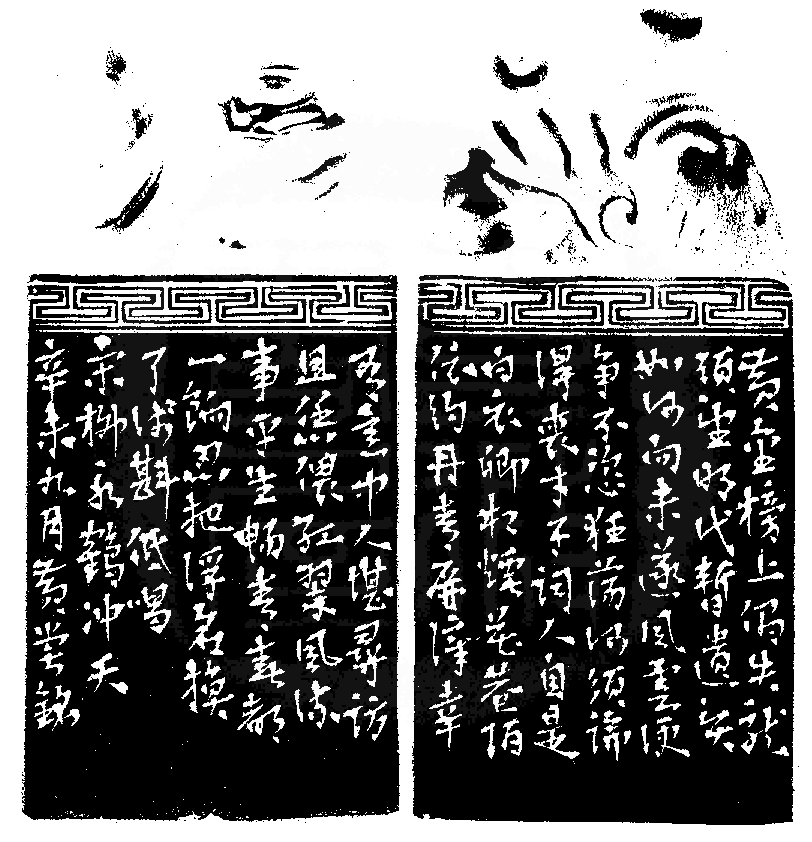 黄金榜上偶失龍
頭望明代暫遺賢
如何向未遂風雲便
争不恣狂荡何須論
得喪才子词人自是
白衣卿相煙花巷陌
依约丹青屏障幸
有意中人堪尋訪
且恁偎红翠風流
事平生畅青春都
一餉忍把浮名换
了浅斟低唱
宋柳永鶴冲天
辛未九月黄銘